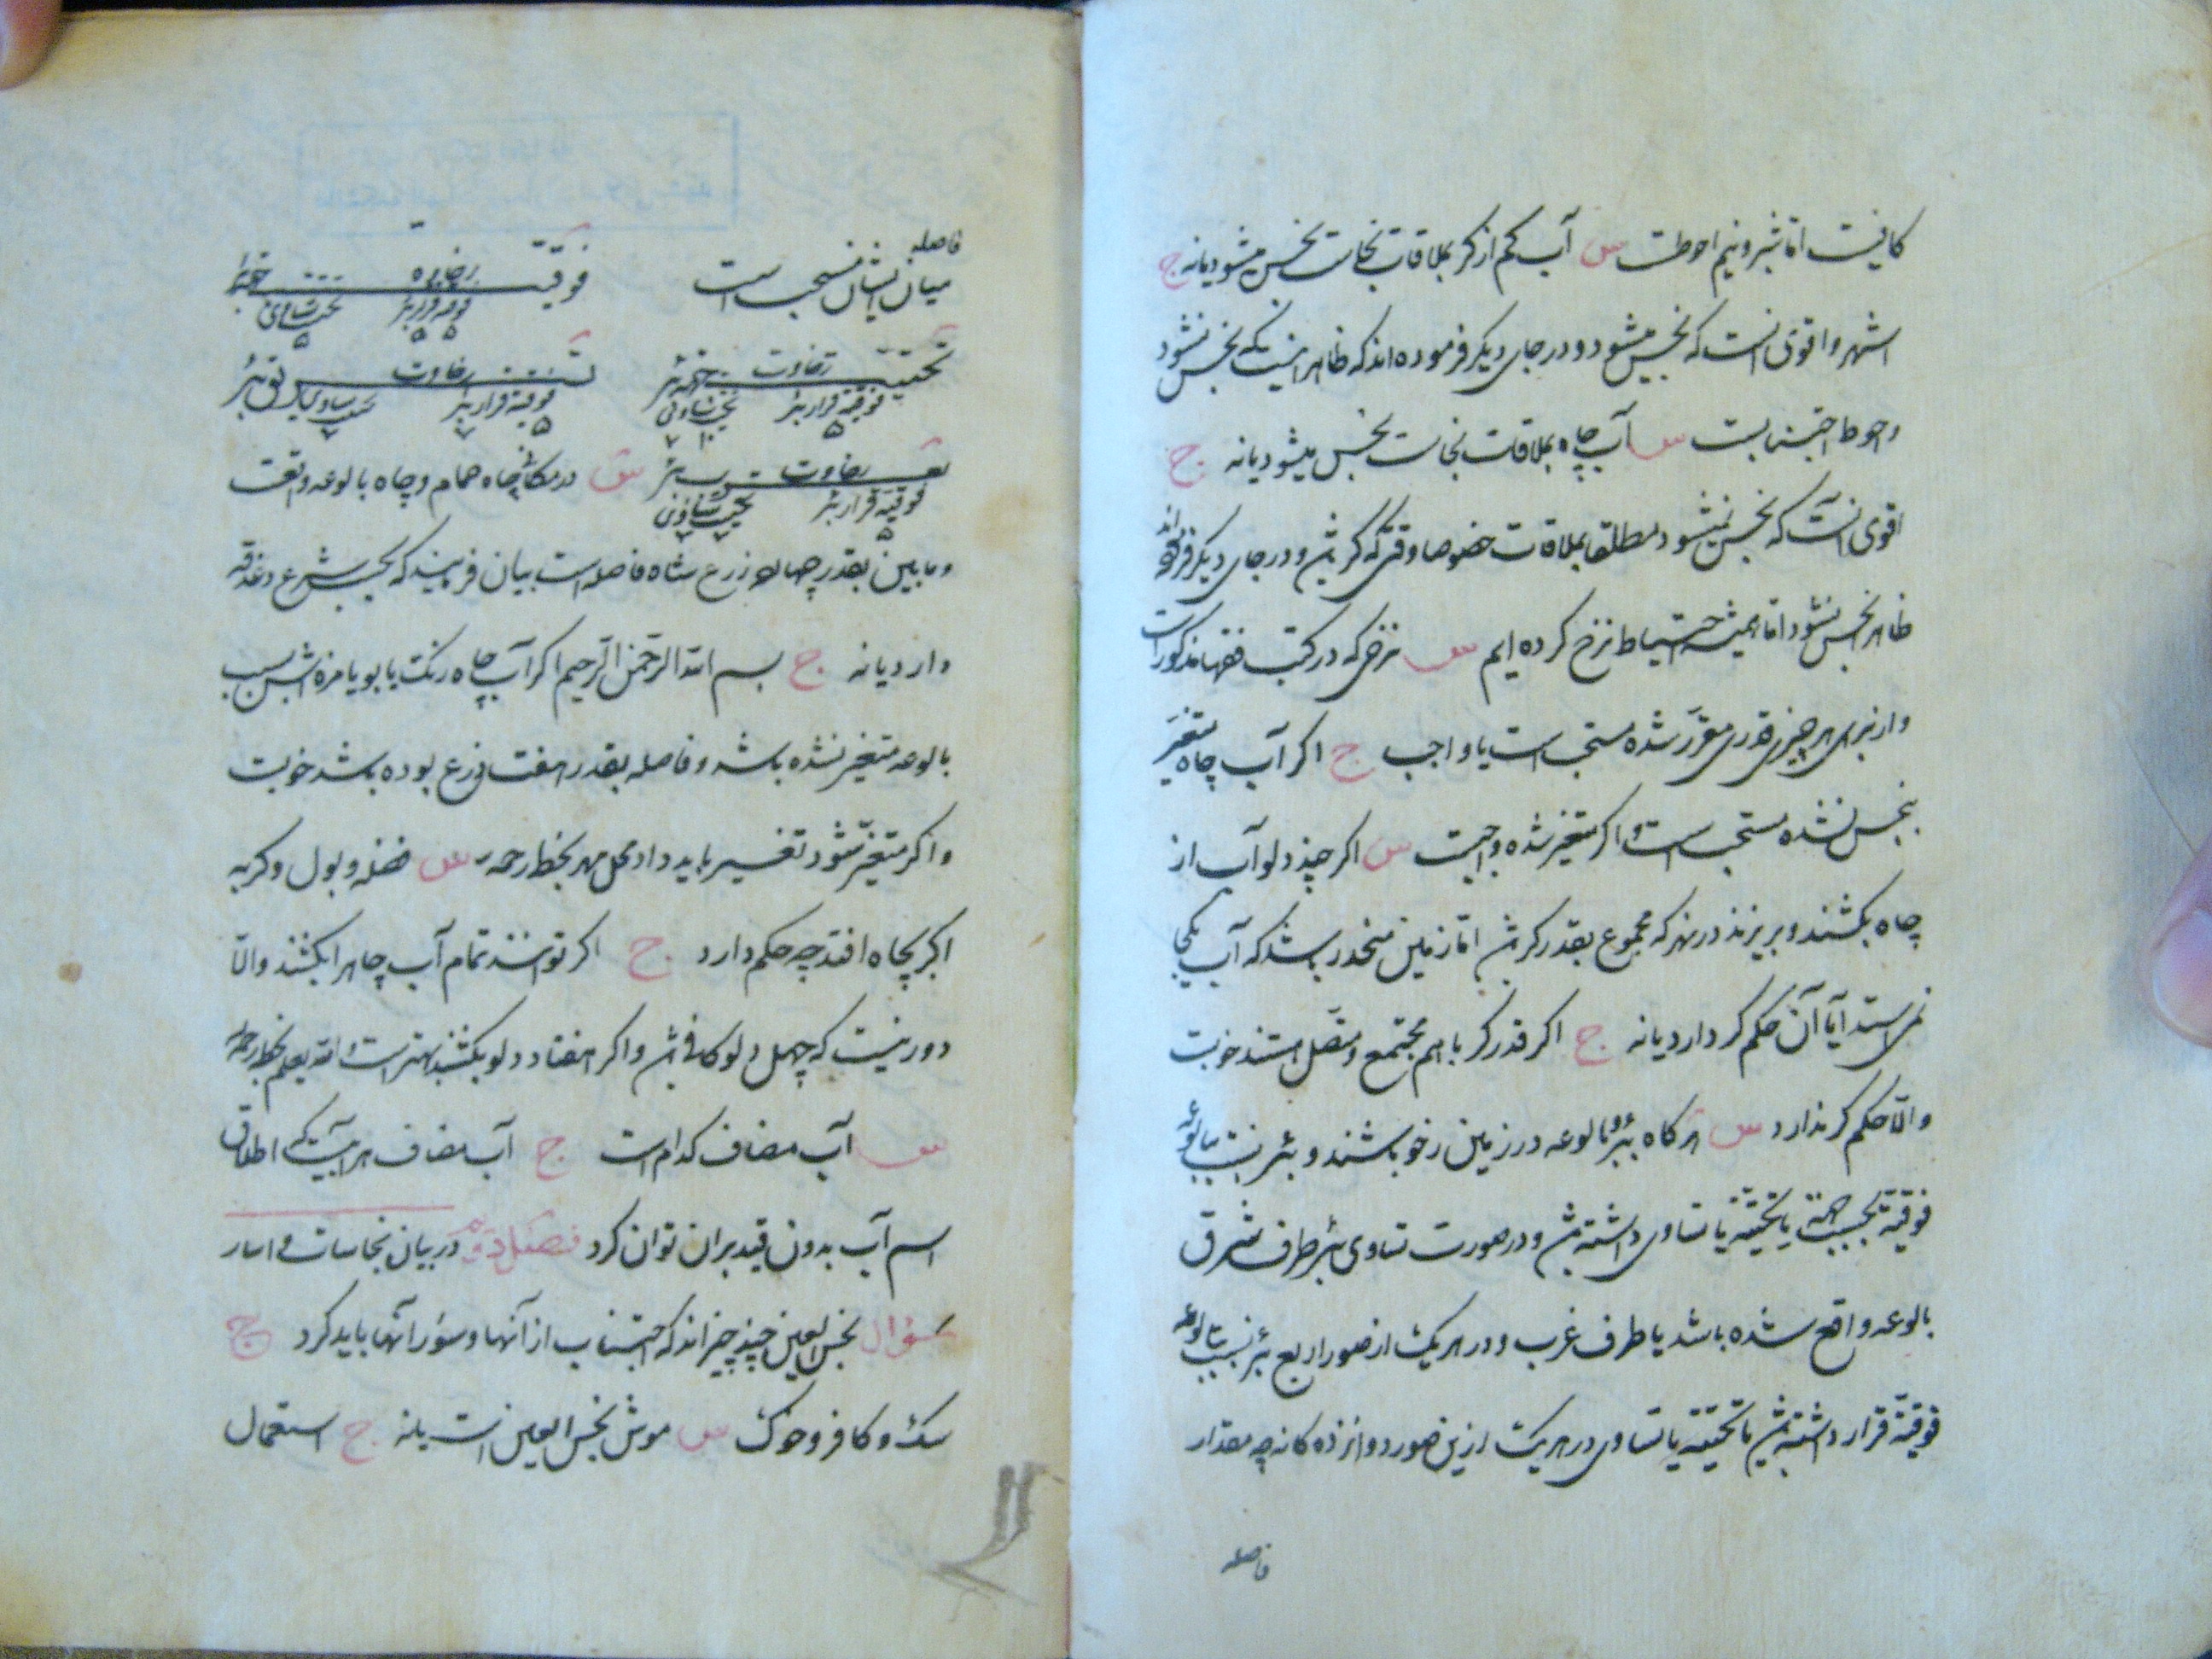 کافیست اما شبر و نیم احوطست س آب کم از کر بملاقات نجاست نجس میشود یا نه ج
اشهر و اقوی انست که نجس میشود و در جای دیکر فرموده اند که ظاهر اینست که نجس نشود
و احوط اجتنابست س آب چاه بملاقات نجاست نجس میشود یا نه ج
اقوی آنست که نجس نمیشود مطلقا بملاقات خصوصا وقتی که کر باشد و در جای دیکر فرموده اند
ظاهرا نجس نشود اما همیشه احتیاط نزح کرده ایم س نزحی که در کتب فقها مذکور است
و از برای هر چیزی قدری مقرر شده مستحب است یا واجب ج اکر آب چاه متغیر
بنجس نشده مستحب است و اکر متغیر شده واجبست س اکر چند دلو آب از
چاه بکشند و بریزند در نهر که مجموع بقدر کر باشد اما زمین منحدر باشد که آب یکجا
نمی استد آیا آن حکم کر دارد یا نه ج اکر قدر کر با هم مجتمع و متصل هستند خوبست
و الا حکم کر ندارد س هر کاه بئر و بالوعه در زمین رخو باشند و بئر بنسبت ببالوعه
فوقیة بحسب جهة یا تحتیة یا تساوی داشته باشد و در صورت تساوی بئر طرف شرق
بالوعه واقع شده باشد یا طرف غرب و در هر یک از صور اربع بئر نسبت ببالوعه
فوقیة قرار داشته باشد یا تحتیة یا تساوی در هر یک ازین صور دوازده کانه چه مقدار
فاصله
فاصله
میان ایشان مستحب است فوقیة
تحتیة رخاوت
فوقیة قرار بئر
رخاوت
فوقیة قرار بئر
س در مکانی چاه حمام و چاه بالوعه واقعست
و مابین بقدر چهار زرع شاه فاصله است بیان فرمایند که بحسب شرع دغدغه
دارد یا نه ج بسم الله الرحمن الرحیم اکر آب چاه رنک یا بو یا مزه اش بسبب
بالوعه متغیر نشده باشد و فاصله بقدر هفت ذرع بوده باشد خوبست
و اکر متغیر شود تغییر باید داد محل مهر بخط رحمه س فضله و بول و کربه
اکر بچاه افتد چه حکم دارد ج اکر توانند تمام آب چاه را بکشند و الا
دور نیست که چهل دلو کافی باشد و اکر هفتاد دلو بکشند بهتر است و الله یعلم بخط رحمه
س آب مضاف کدام است ج آب مضاف هر آبیست که اطلاق
اسم آب بدون قید بران توان کرد فصل دوم در بیان نجاسات و اسار
سؤال نجس العین چند چیز اند که اجتناب از آنها و سؤر آنها باید کرد ج
سک و کافر و خوک س موش نجس العین است یا نه ج استعمال